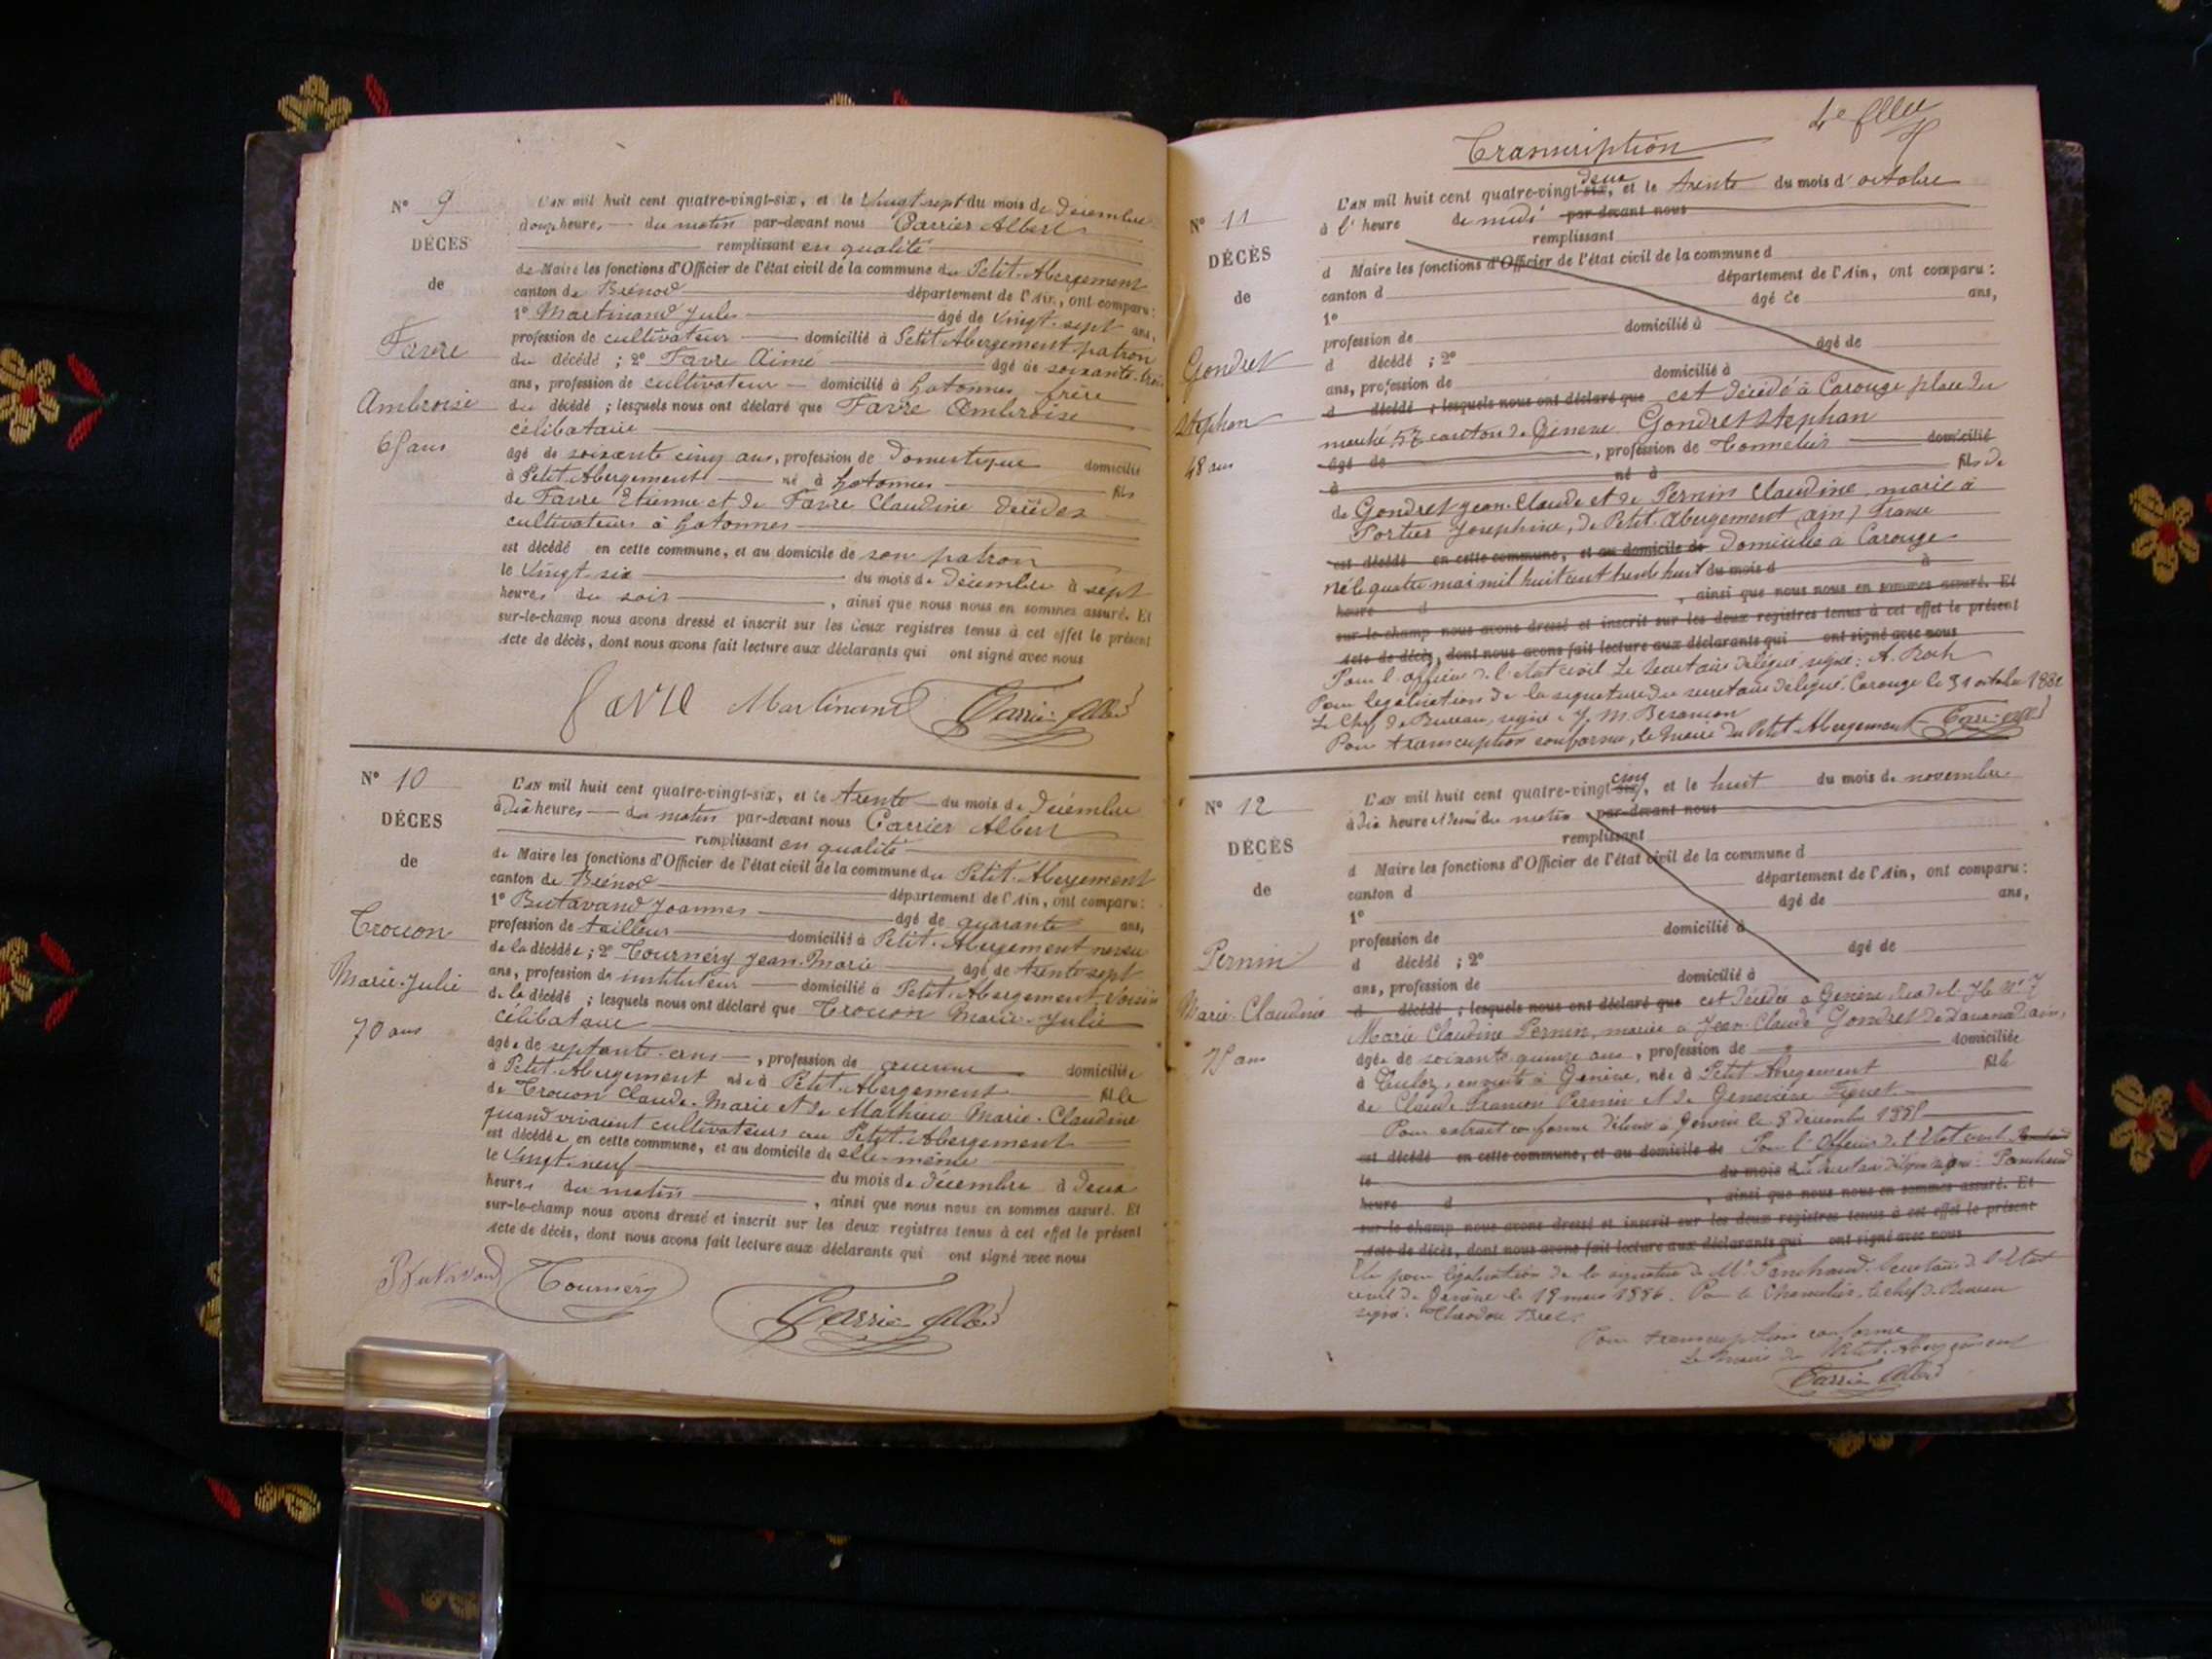 N° 9
DÉCÈS
de
Favre
Ambroise
65 ans
L'AN mil huit cent quatre-vingt-six, et le vingt sept du mois de décembre
heures du matin par-devant nous Carrier Albert
remplissant en qualité
de Maire les fonctions d'Officier de l'état civil de la commune du Petit-Abergement
canton de Brénod département de l'Ain, ont comparu :
1° Martinand Jules âgé de vingt-sept ans,
profession de cultivateur domicilié à Petit Abergement patron
du décédé ; 2° Favre Aimé âgé de soixante-trois
ans, profession de cultivateur domicilié à hotonnes frère
du décédé ; lesquels nous ont déclaré que Favre Ambroise
célibataire
âgé de soixante cinq ans, profession de Domestique domicilié
à Petit-Abergement né à hotonnes fils
de Favre Etienne et de Favre Claudine décédés
cultivateurs à hotonnes
est décédé en cette commune, et au domicile de son patron
le vingt-six du mois de décembre à sept
heures du soir, ainsi que nous nous en sommes assuré. Et
sur-le-champ nous avons dressé et inscrit sur les deux registres tenus à cet effet le présent
acte de décès, dont nous avons fait lecture aux déclarants qui ont signé avec nous
favre Martinand Carrier Albert
N° 10
DÉCES
de
Crouon
Marie-Julie
70 ans
L'AN mil huit cent quatre-vingt-six, et le trente du mois de décembre
à Dix heures du matin par-devant nous Carrier Albert
remplissant en qualité
de Maire les fonctions d'Officier de l'état civil de la commune du Petit-Abergement
canton de Brénod département de l'Ain, ont comparu :
1° Butavand Joannes âgé de quarante ans,
profession de tailleur domicilié à Petit-Abergement neveu
de la décédée ; 2° Tournéry Jean-Marie âgé de trente sept
ans, profession de instituteur domicilié à Petit-Abergement, voisin
de la décédé ; lesquels nous ont déclaré que Crouon Marie-Julie
célibataire
âgée de septante ans, profession de aucune domiciliée
à Petit-Abergement née à Petit-Abergement fille
de Crouon Claude-Marie et de Mathieu Marie-Claudine
quand vivaient cultivateurs au Petit-Abergement
est décédée en cette commune, et au domicile de elle-même
le vingt-neuf du mois de décembre à deux
heures du matin, ainsi que nous nous en sommes assuré. Et
sur-le-champ nous avons dressé et inscrit sur les deux registres tenus à cet effet le présent
acte de décès, dont nous avons fait lecture aux déclarants qui ont signé avec nous
Butavand Tournéry
Carrier Albert
Transcription
N° 11
DÉCÈS
de
Gondret
Stephan
48 ans
deux
L'AN mil huit cent quatre-vingt-six, et le trente du mois d'octobre
à l' heure de midi par-devant nous
remplissant
d Maire les fonctions d'Officier de l'état civil de la commune d
canton d département de l'Ain, ont comparu :
1° âgé de ans,
profession de domicilié à
d décédé ; 2° âgé de
ans, profession de domicilié à
d décédé ; lesquels nous ont déclaré que est décédé à Carouge place du
marché 57 canton de Genève Gondret Stephan
âgé de, profession de Tonnelier domicilié
à né à fils de
de Gondret Jean-Claude et de Pernin Claudine, marié à
Portier Josephine, de Petit-Abergement (ain) France
est décédé en cette commune, et au domicile de Domicilié à Carouge
né le quatre mai mil huit cent trente huit du mois d à
heure d, ainsi que nous nous en sommes assuré. Et
sur-le-champ nous avons dressé et inscrit sur les deux registres tenus à cet effet le présent
acte de décès, dont nous avons fait lecture aux déclarants qui ont signé avec nous
Pour l'officier de l'état civil Le Secrétaire délégué, signé : A. Roch
Pour légalisation de la signature du secrétaire délégué. Carouge le 31 octobre 1882
Le Chef de Bureau, signé : J. M. Besançon
Pour transcription conforme, le Maire du Petit Abergement Carrier Albert
N° 12
DÉCÈS
de
Pernin
Marie-Claudine
75 ans
cinq
L'AN mil huit cent quatre-vingt-six, et le huit du mois de novembre
à dix heure et demi du matin par-devant nous
remplissant
d Maire les fonctions d'Officier de l'état civil de la commune d
canton d département de l'Ain, ont comparu :
1° âgé de ans,
profession de domicilié à
d décédé ; 2° âgé de
ans, profession de domicilié à
d décédé ; lesquels nous ont déclaré que est décédée à Genève N° 7
Marie Claudine Pernin, mariée à Jean-Claude Gondret
âgée de soixante quinze ans, profession de domiciliée
à Culoz, ensuite à Genève, née à Petit Abergement fille
de Claude François Pernin et de Geneviève
Pour extrait conforme délivré à Genève le 8 décembre 1885
est décédé en cette commune, et au domicile de Pour l'Officier de l'Etat civil
le du mois d Secrétaire délégué signé : Panchaud
heure d, ainsi que nous nous en sommes assuré. Et
sur-le-champ nous avons dressé et inscrit sur les deux registres tenus à cet effet le présent
acte de décès, dont nous avons fait lecture aux déclarants qui ont signé avec nous
Vu pour légalisation de la signature de Mr Panchaud, Secrétaire de l'Etat
civil de Genève le 18 mars 1886. Pour le Chancelier, le chef de Bureau
signé : Théodore Bret.
Pour transcription conforme
Le Maire du Petit-Abergement
Carrier Albert